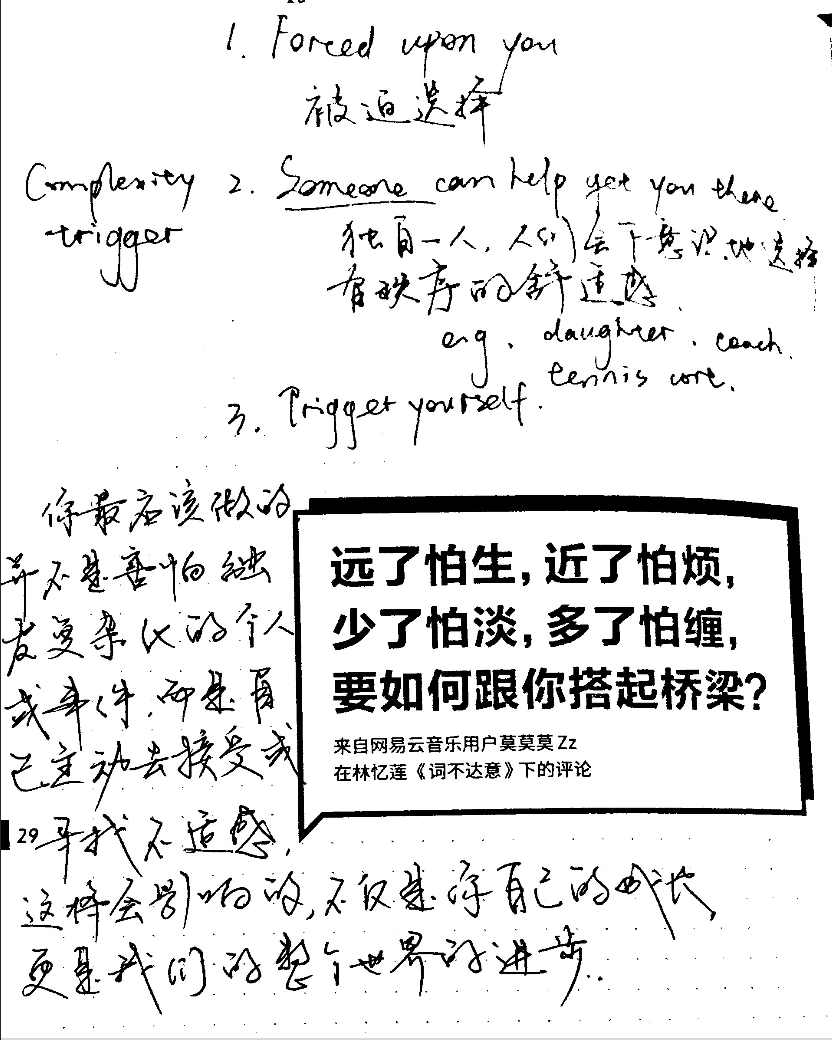 1. Forced upon you
被迫选择
Complexity
trigger
2. Someone can help get you there
独自一人,人们会下意识地选择
有秩序的舒适感.
e.g. daughter. coach.
tennis
3. Trigger yourself.
你最应该做的
并不是害怕触
发复杂化的个人
或事件,而是自
己主动去接受或
寻找不适感,
这样会影响的,不仅是你自己的成长,
更是我们的整个世界的进步..
远了怕生,近了怕烦,
少了怕淡,多了怕缠,
要如何跟你搭起桥梁?
来自网易云音乐用户莫莫莫Zz
在林忆莲《词不达意》下的评论
29